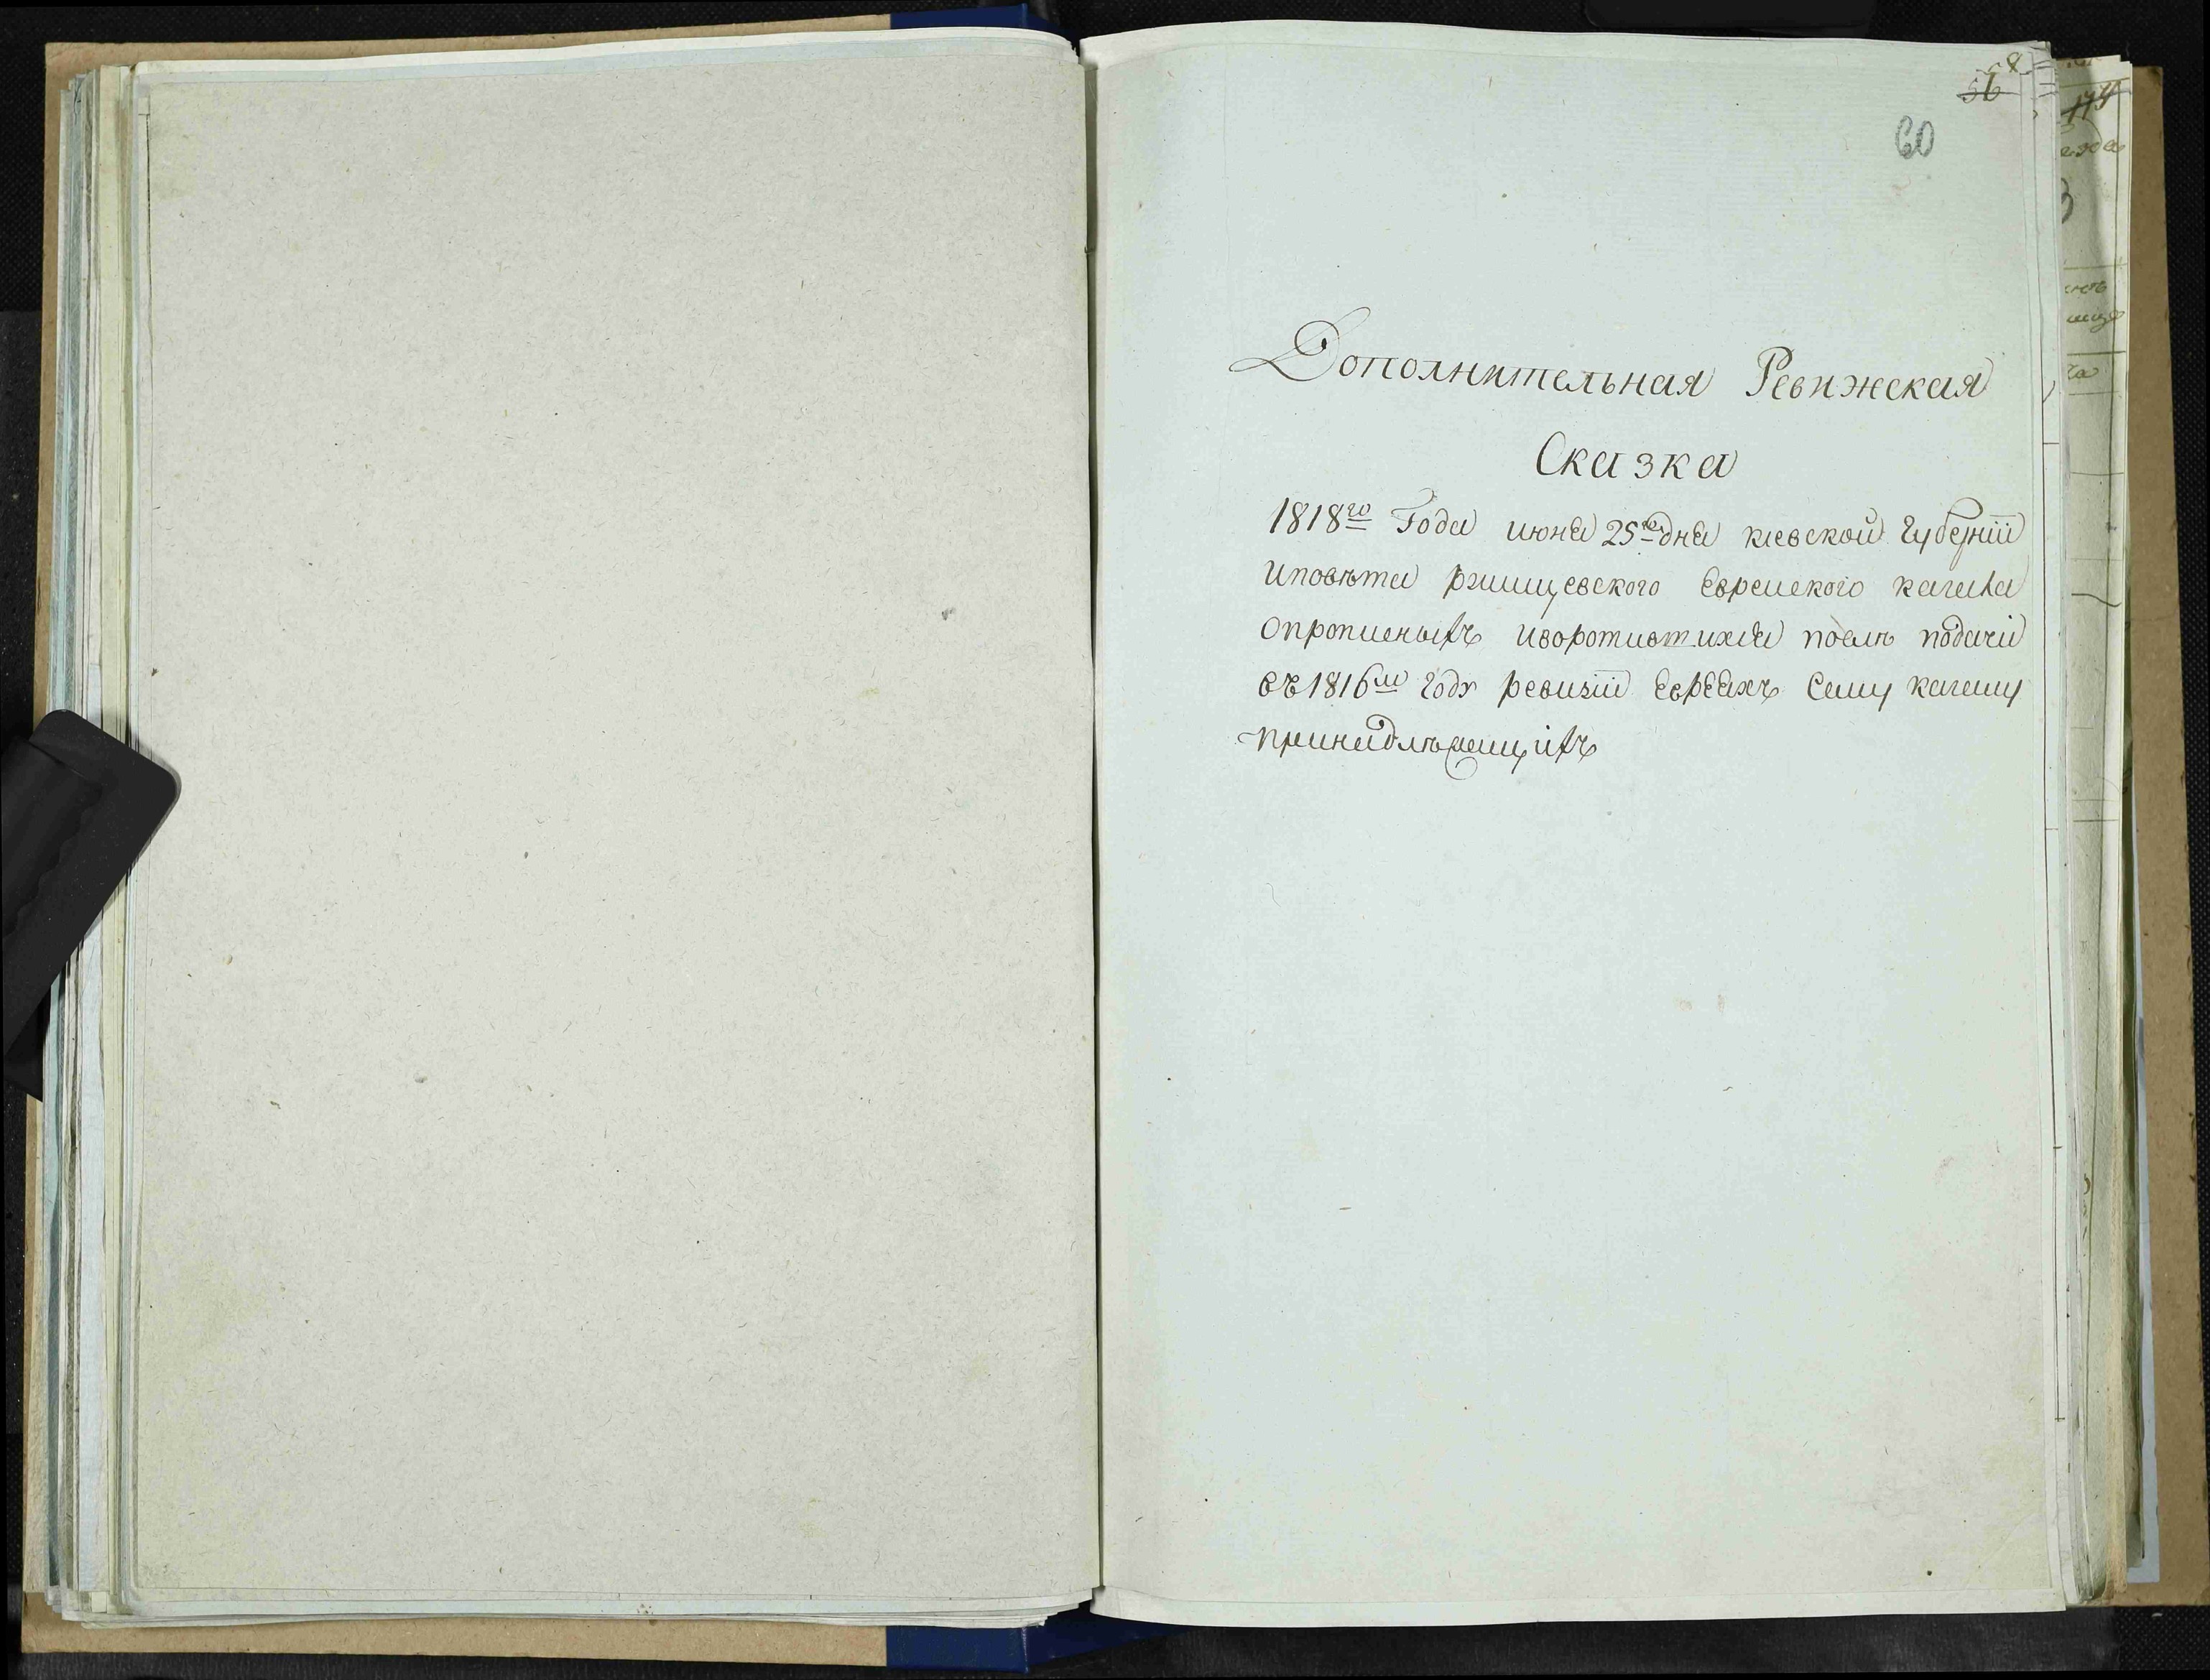 58
56
60
Дополнительная Ревижская
Сказка
1818го Года июня 25го дня киевской губернїи
иповѣта ржищевского Еврейского кагала
опрописныхъ иворотившихся послѣ подачи
въ 1816м году ревизїи Евреяхъ Сему кагалу
принадлѣжащихъ
174